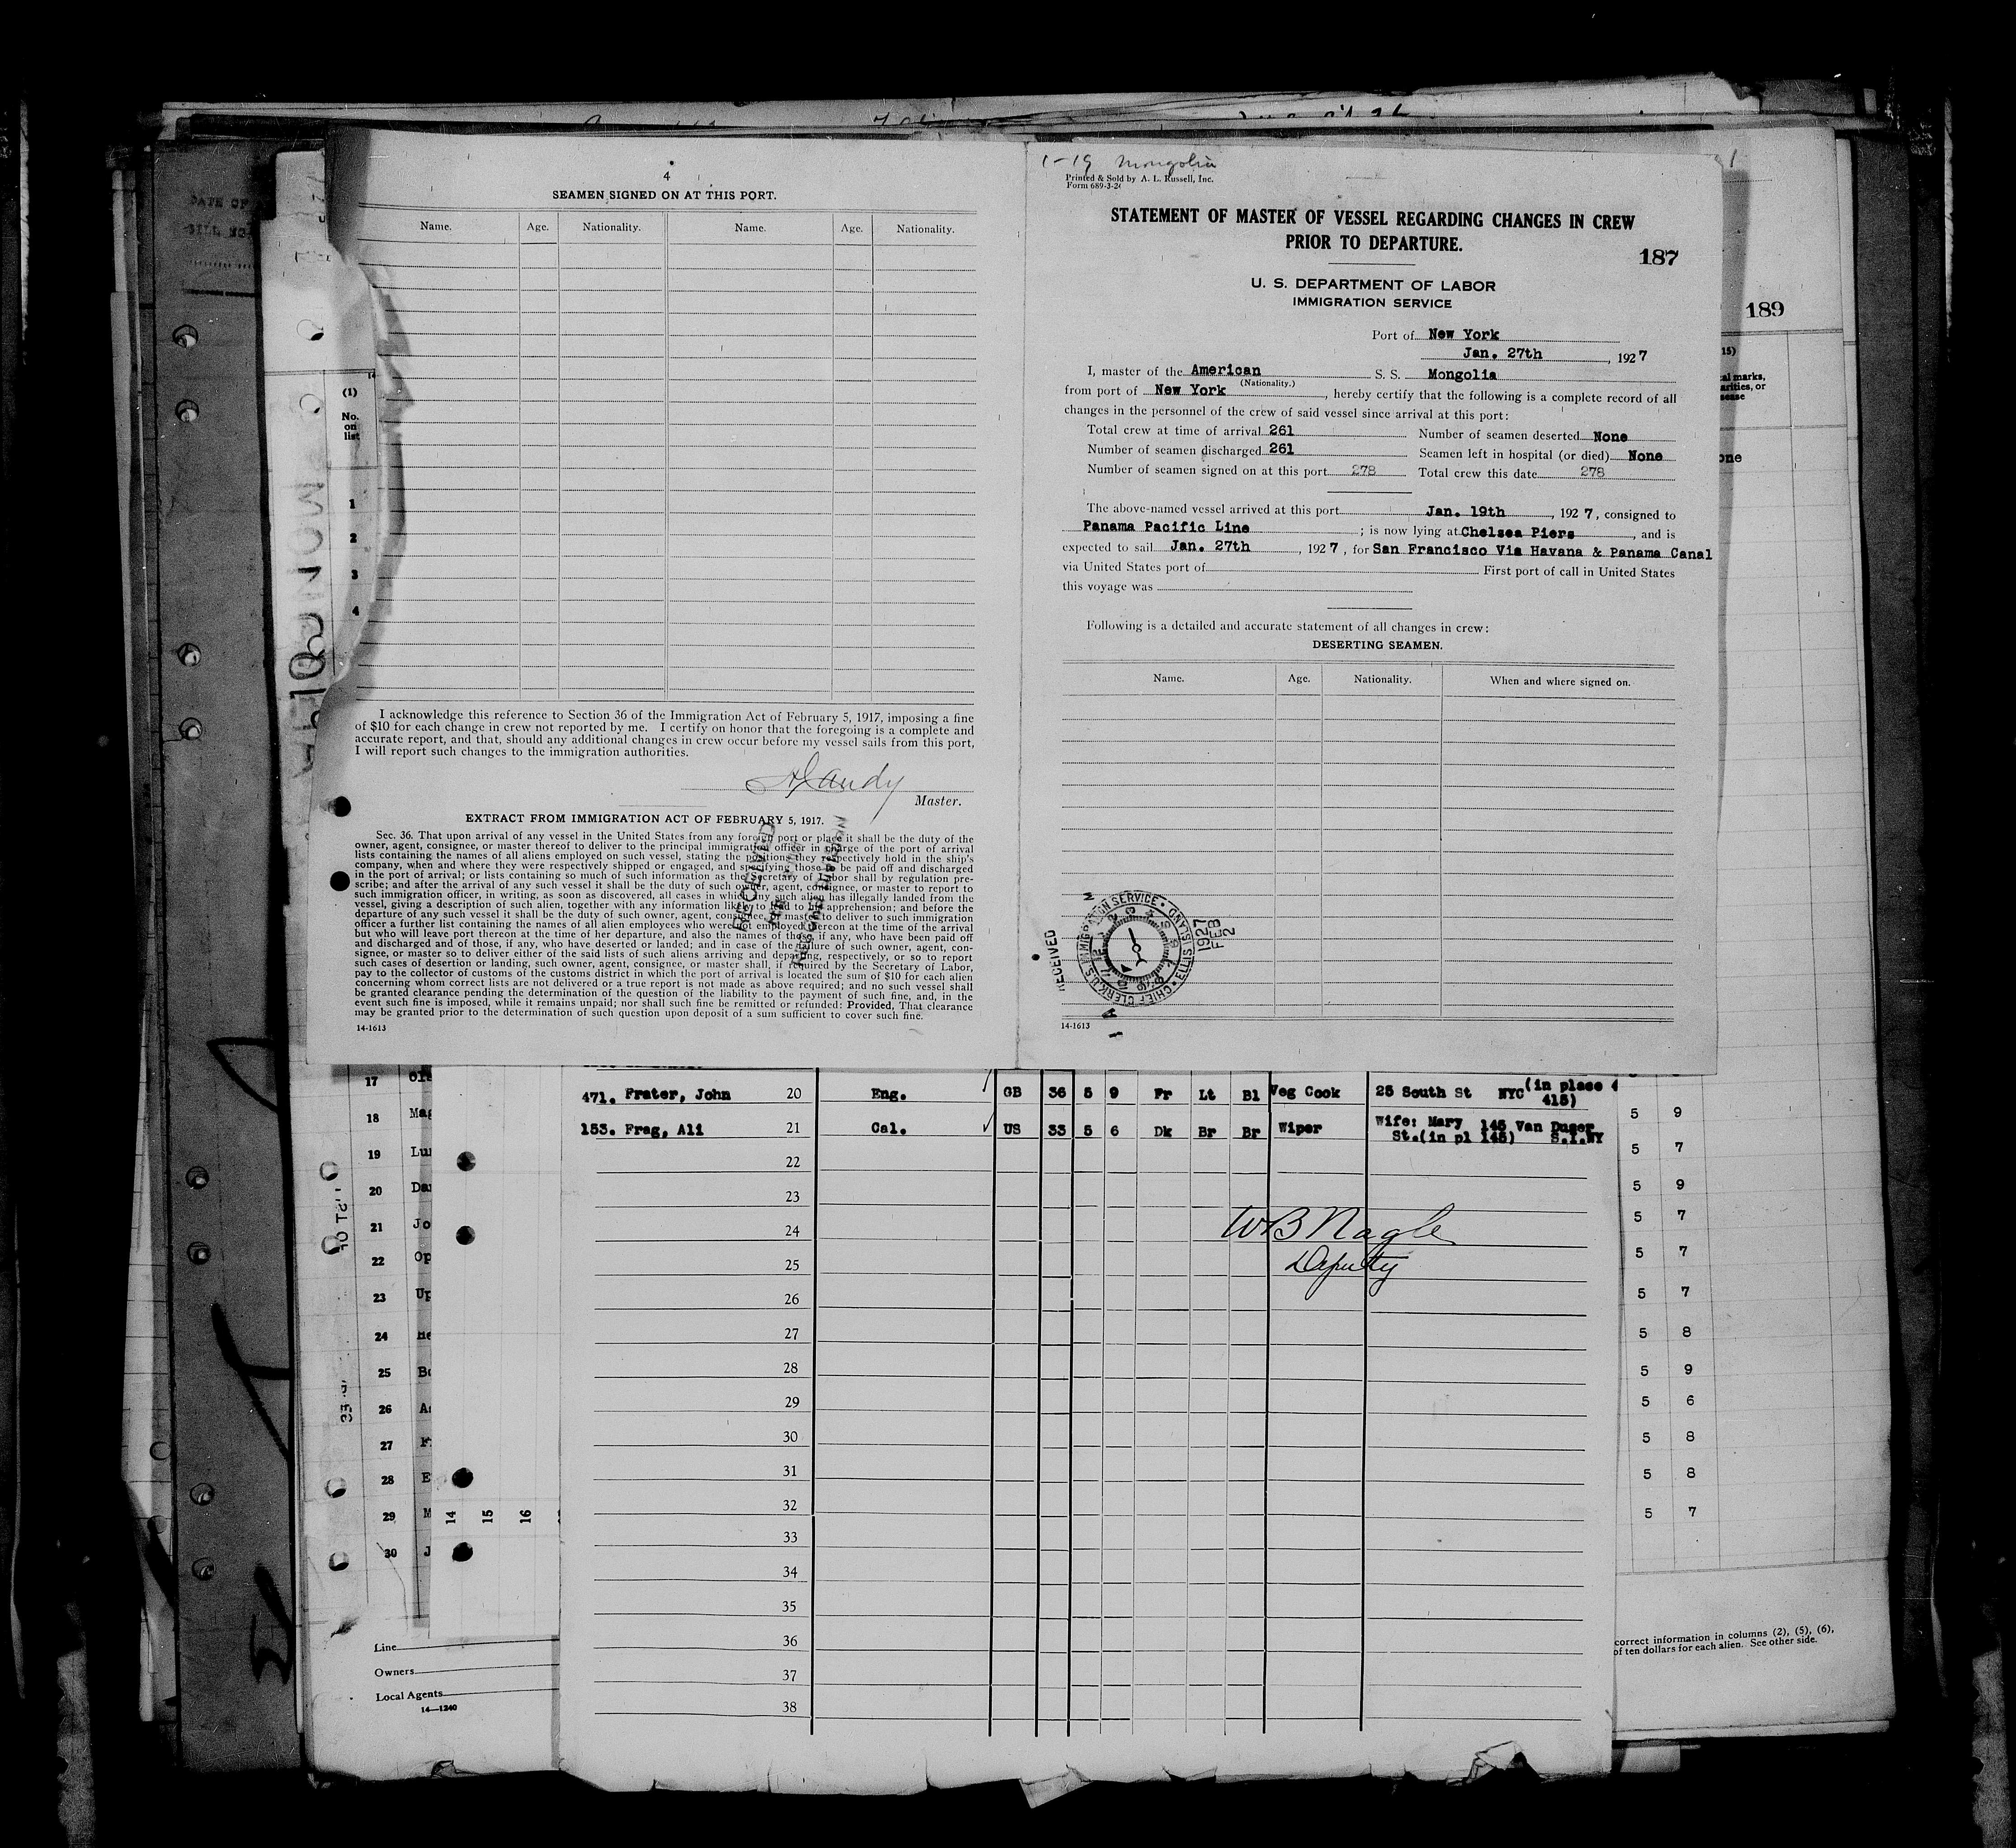 4
SEAMEN SIGNED ON AT THIS PORT.
Name. Age. Nationality. Name. Age. Nationality.
I acknowledge this reference to Section 36 of the Immigration Act of February 5, 1917, imposing a fine
of $10 for each change in crew not reported by me. I certify on honor that the foregoing is a complete and
accurate report, and that, should any additional changes in crew occur before my vessel sails from this port,
I will report such changes to the immigration authorities.
Master.
EXTRACT FROM IMMIGRATION ACT OF FEBRUARY 5, 1917.
Sec. 36. That upon arrival of any vessel in the United States from any foreign port or place it shall be the duty of the
owner, agent, consignee, or master thereof to deliver to the principal immigration officer in charge of the port of arrival
lists containing the names of all aliens employed on such vessel, stating the positions they respectively hold in the ship's
company, when and where they were respectively shipped or engaged, and specifying those to be paid off and discharged
in the port of arrival; or lists containing so much of such information as the Secretary of Labor shall by regulation pre-
scribe; and after the arrival of any such vessel it shall be the duty of such owner, agent, consignee, or master to report to
such immigration officer, in writing, as soon as discovered, all cases in which any such alien has illegally landed from the
vessel, giving a description of such alien, together with any information likely to lead to his apprehension; and before the
departure of any such vessel it shall be the duty of such owner, agent, consignee, or master to deliver to such immigration
officer a further list containing the names of all alien employees who were not employed thereon at the time of the arrival
but who will leave port thereon at the time of her departure, and also the names of those, if any, who have been paid off
and discharged and of those, if any, who have deserted or landed; and in case of the failure of such owner, agent, con-
signee, or master so to deliver either of the said lists of such aliens arriving and departing, respectively, or so to report
such cases of desertion or landing, such owner, agent, consignee, or master shall, if required by the Secretary of Labor,
pay to the collector of customs of the customs district in which the port of arrival is located the sum of $10 for each alien
concerning whom correct lists are not delivered or a true report is not made as above required; and no such vessel shall
be granted clearance pending the determination of the question of the liability to the payment of such fine, and, in the
event such fine is imposed, while it remains unpaid; nor shall such fine be remitted or refunded: Provided, That clearance
may be granted prior to the determination of such question upon deposit of a sum sufficient to cover such fine.
14-1613
RECEIVED
1-19 Mongolia
Printed & Sold by A. L. Russell, Inc.
Form 689-3-26
STATEMENT OF MASTER OF VESSEL REGARDING CHANGES IN CREW
PRIOR TO DEPARTURE.
187
U. S. DEPARTMENT OF LABOR
IMMIGRATION SERVICE
Port of New York
Jan. 27th, 1927
I, master of the American S. S. Mongolia
(Nationality.)
from port of New York, hereby certify that the following is a complete record of all
changes in the personnel of the crew of said vessel since arrival at this port:
Total crew at time of arrival 261 Number of seamen deserted None
Number of seamen discharged 261 Seamen left in hospital (or died) None
Number of seamen signed on at this port 278 Total crew this date 278
The above-named vessel arrived at this port Jan. 19th, 1927, consigned to
Panama Pacific Line; is now lying at Chelsea Piers, and is
expected to sail Jan. 27th, 1927, for San Francisco Via Havana & Panama Canal
via United States port of First port of call in United States
this voyage was
Following is a detailed and accurate statement of all changes in crew:
DESERTING SEAMEN.
Name. Age. Nationality. When and where signed on.
RECEIVED
U.S. IMMIGRATION SERVICE • ELLIS ISLAND • CHIEF CLERK
1927
FEB
2
14-1613
189
(1)
No.
on
list
1
2
3
4
471. Frater, John 20 Eng. GB 36 5 9 Fr Lt Bl Veg Cook 25 South St NYC (in place
415)
153. Frag, Ali 21 Cal. US 33 5 6 Dk Br Br Wiper Wife: Mary 145 Van Duser
St.(in pl 145) S.I.NY
22
23
24
25
26
27
28
29
30
31
32
33
34
35
36
37
38
WB Nagle
Deputy
17
18
19
20
21
22
23
24
25
26
27
28
29
30
14
15
16
5 9
5 7
5 9
5 7
5 7
5 7
5 8
5 9
5 6
5 8
5 8
5 7
Line
Owners
Local Agents
14—1240
correct information in columns (2), (5), (6),
of ten dollars for each alien. See other side.